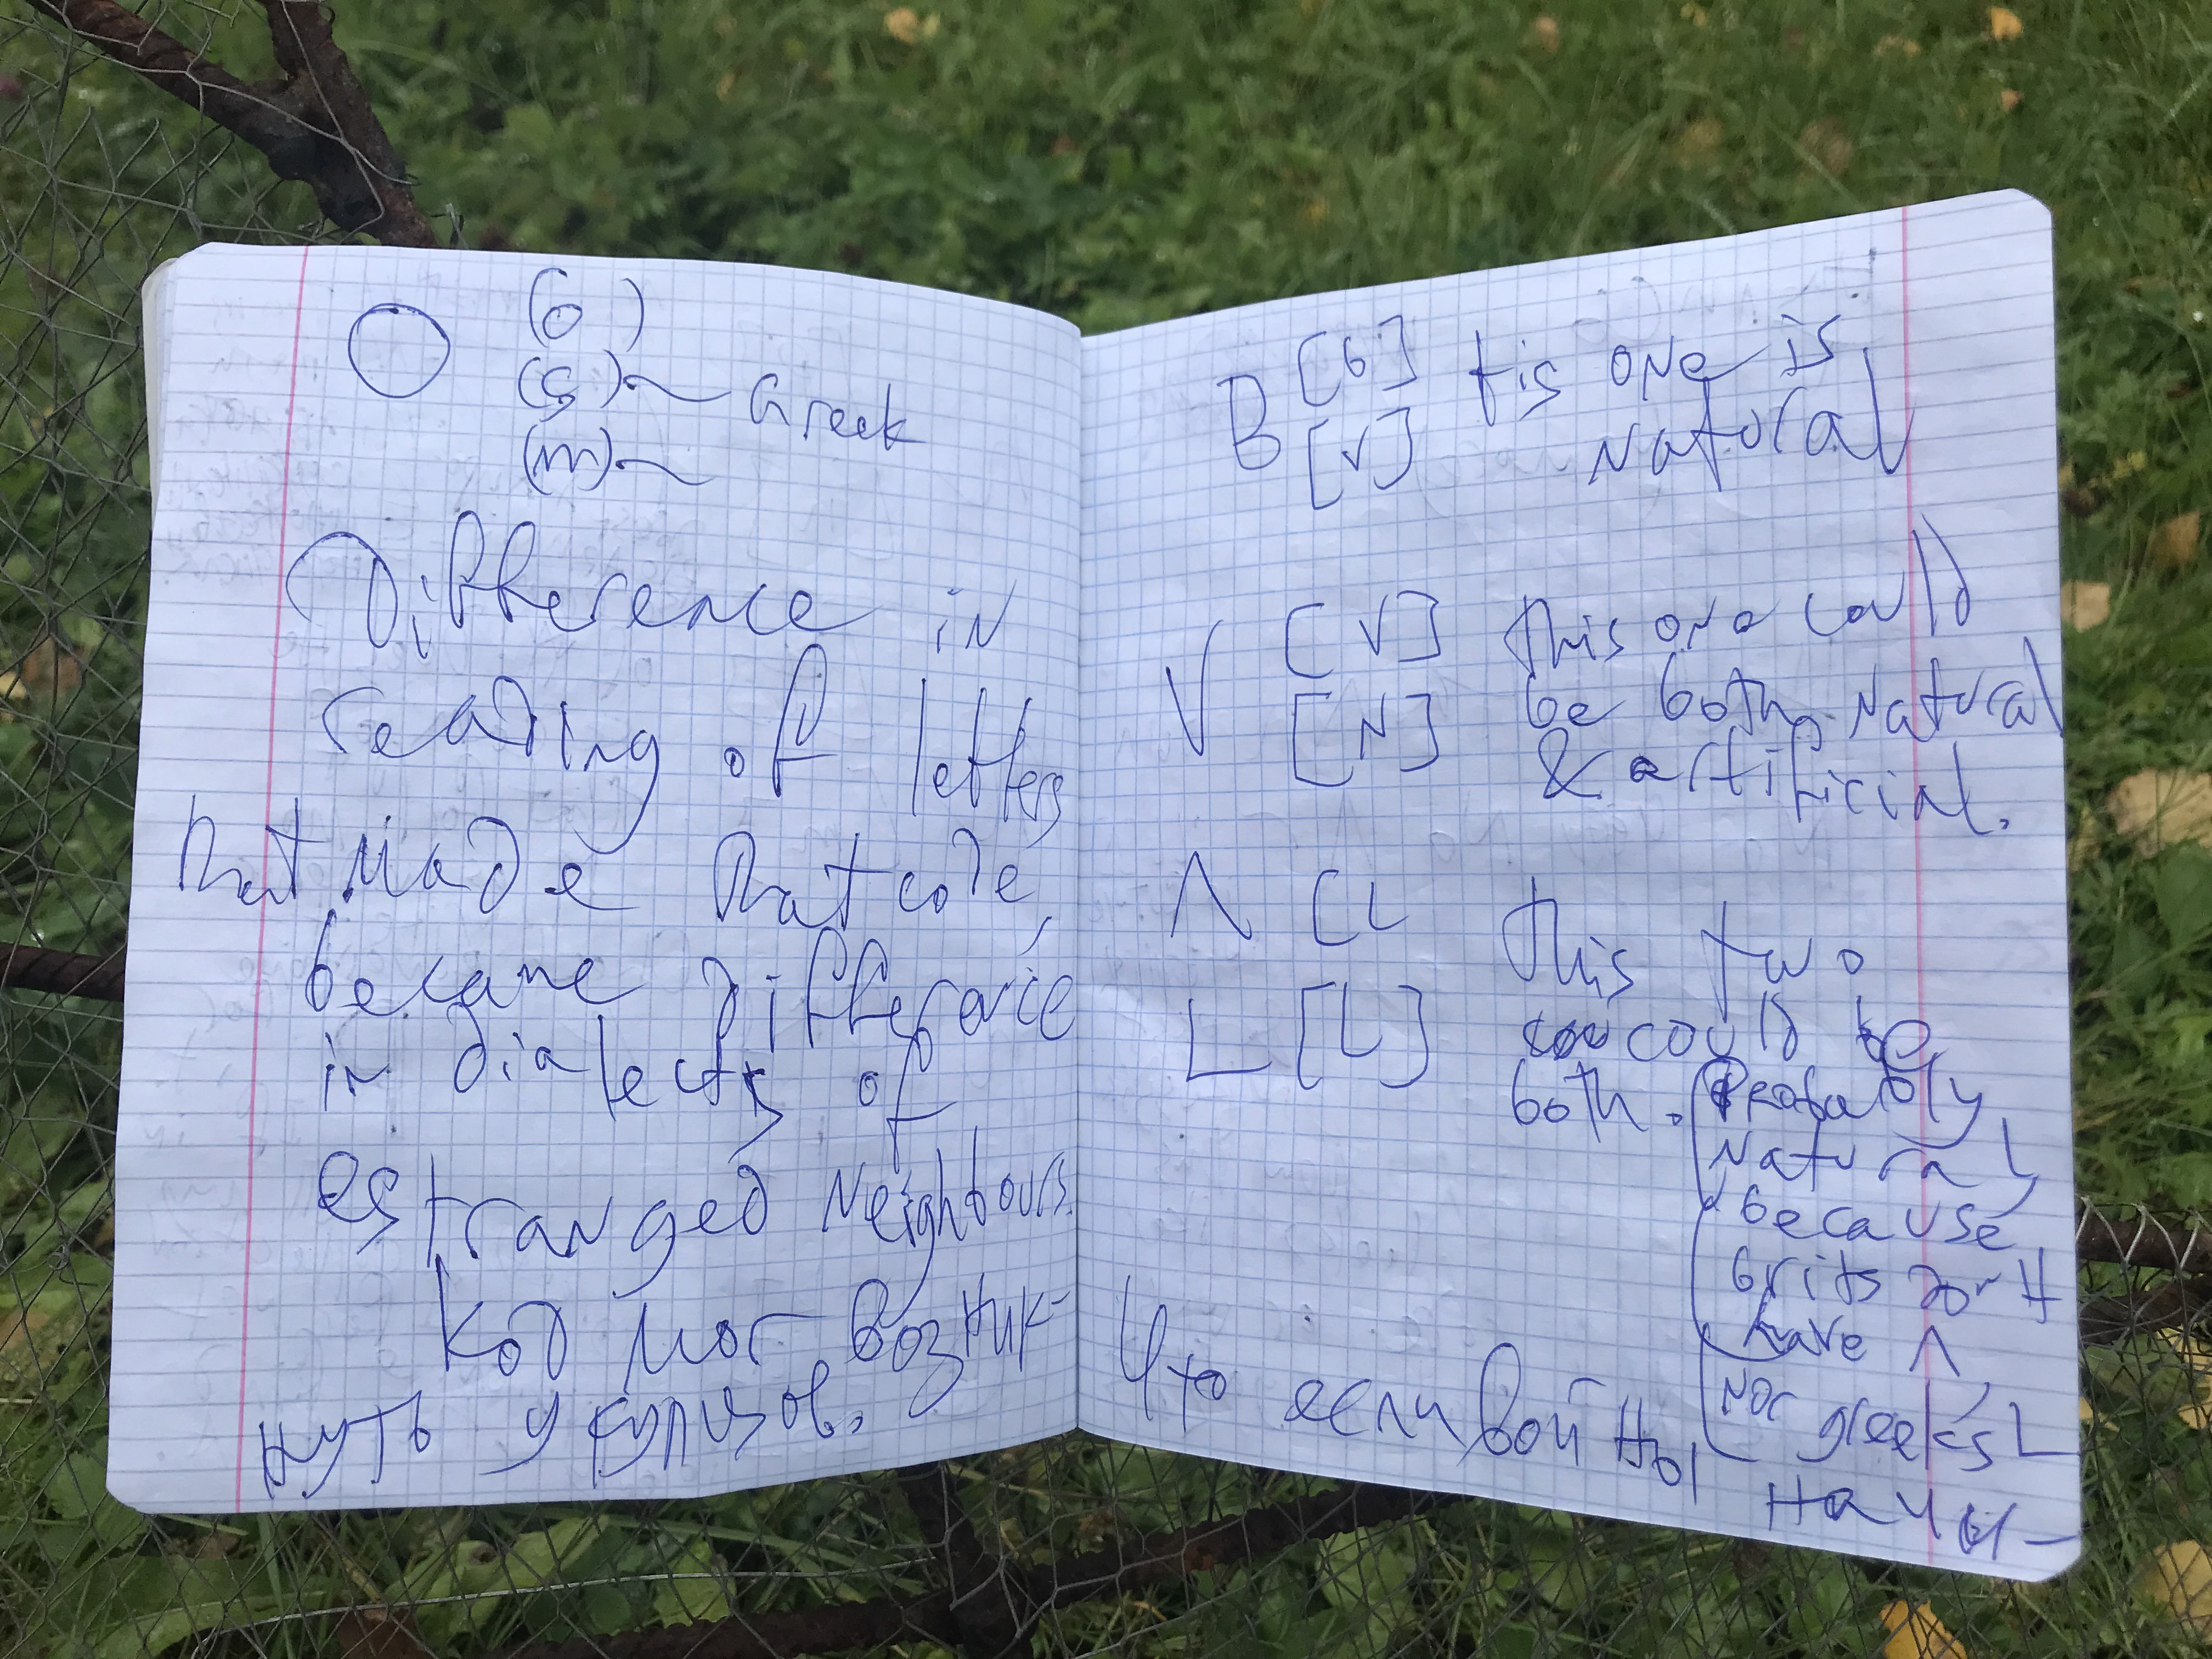 O (б)
(ς) ~ Greek
(m) ~
Difference in
reading of letters
that made that code,
became difference
in dialects of
estranged neighbours.
Код мог возник-
нуть у купцов,
B [б] tis one is
[V] natural
V [V] this one could
[N] be both natural
& artificial.
Λ [L this two
L [L] could be
both. Probably
natural,
because
brits don't
have Λ
nor greeks L
Что если войны
начи-